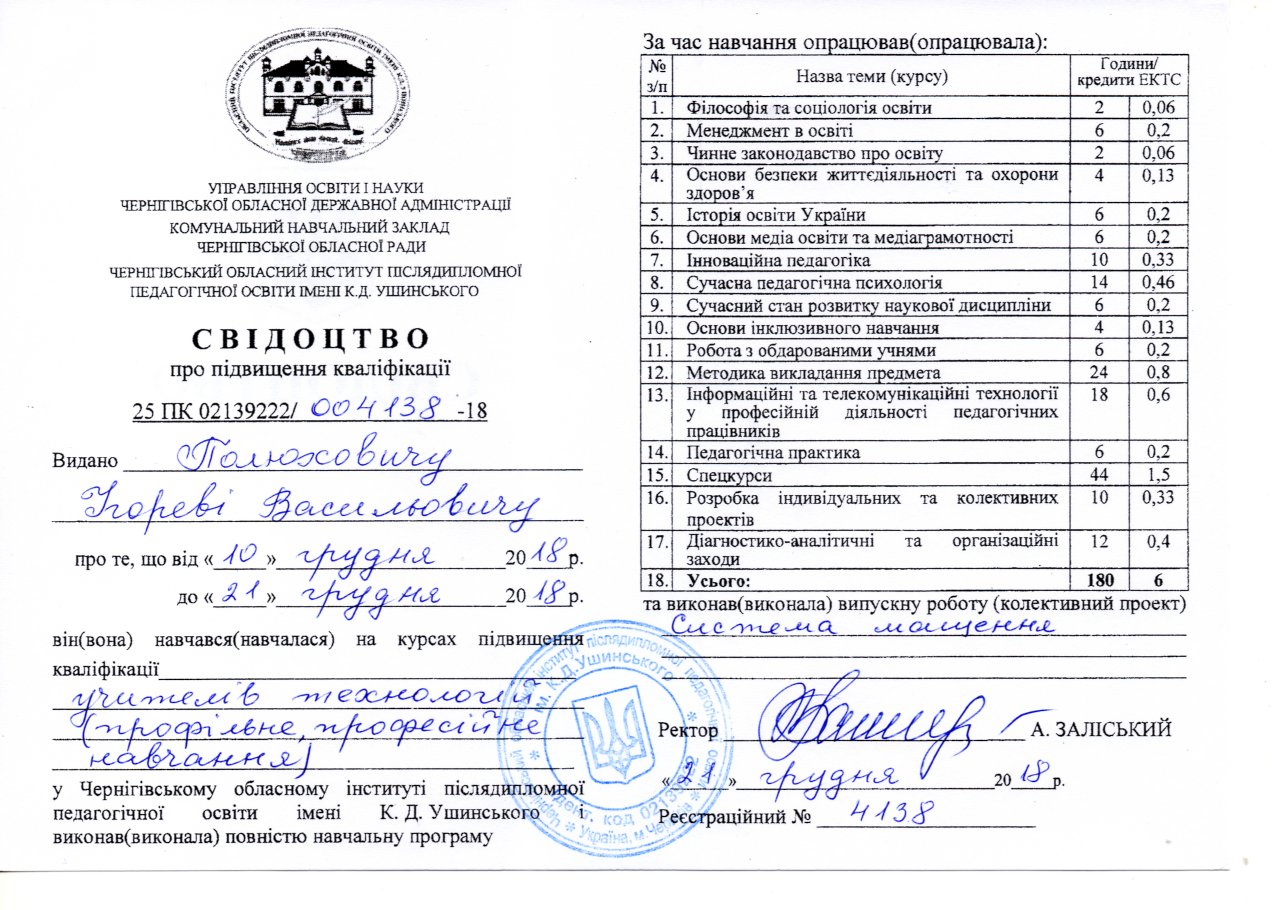 УПРАВЛІННЯ ОСВІТИ І НАУКИ
ЧЕРНІГІВСЬКОЇ ОБЛАСНОЇ ДЕРЖАВНОЇ АДМІНІСТРАЦІЇ
КОМУНАЛЬНИЙ НАВЧАЛЬНИЙ ЗАКЛАД
ЧЕРНІГІВСЬКОЇ ОБЛАСНОЇ РАДИ
ЧЕРНІГІВСЬКИЙ ОБЛАСНИЙ ІНСТИТУТ ПІСЛЯДИПЛОМНОЇ
ПЕДАГОГІЧНОЇ ОСВІТИ ІМЕНІ К.Д. УШИНСЬКОГО
СВІДОЦТВО
про підвищення кваліфікації
25 ПК 02139222/ 004138 -18
Видано Полюховичу
Ігореві Васильовичу
про те, що від «10» грудня 2018 р.
до «21» грудня 2018 р.
він(вона) навчався(навчалася) на курсах підвищення
кваліфікації
учителів технологій
(профільне, професійне
навчання)
у Чернігівському обласному інституті післядипломної
педагогічної освіти імені К. Д. Ушинського і
виконав(виконала) повністю навчальну програму
За час навчання опрацював(опрацювала):
№ з/п Назва теми (курсу) Години/ кредити ЕКТС
1. Філософія та соціологія освіти 2 0,06
2. Менеджмент в освіті 6 0,2
3. Чинне законодавство про освіту 2 0,06
4. Основи безпеки життєдіяльності та охорони 4 0,13
здоров’я
5. Історія освіти України 6 0,2
6. Основи медіа освіти та медіаграмотності 6 0,2
7. Інноваційна педагогіка 10 0,33
8. Сучасна педагогічна психологія 14 0,46
9. Сучасний стан розвитку наукової дисципліни 6 0,2
10. Основи інклюзивного навчання 4 0,13
11. Робота з обдарованими учнями 6 0,2
12. Методика викладання предмета 24 0,8
13. Інформаційні та телекомунікаційні технології 18 0,6
у професійній діяльності педагогічних
працівників
14. Педагогічна практика 6 0,2
15. Спецкурси 44 1,5
16. Розробка індивідуальних та колективних 10 0,33
проектів
17. Діагностико-аналітичні та організаційні 12 0,4
заходи
18. Усього: 180 6
та виконав(виконала) випускну роботу (колективний проект)
Система мащення
Ректор А. ЗАЛІСЬКИЙ
«21» грудня 2018 р.
Реєстраційний № 4138